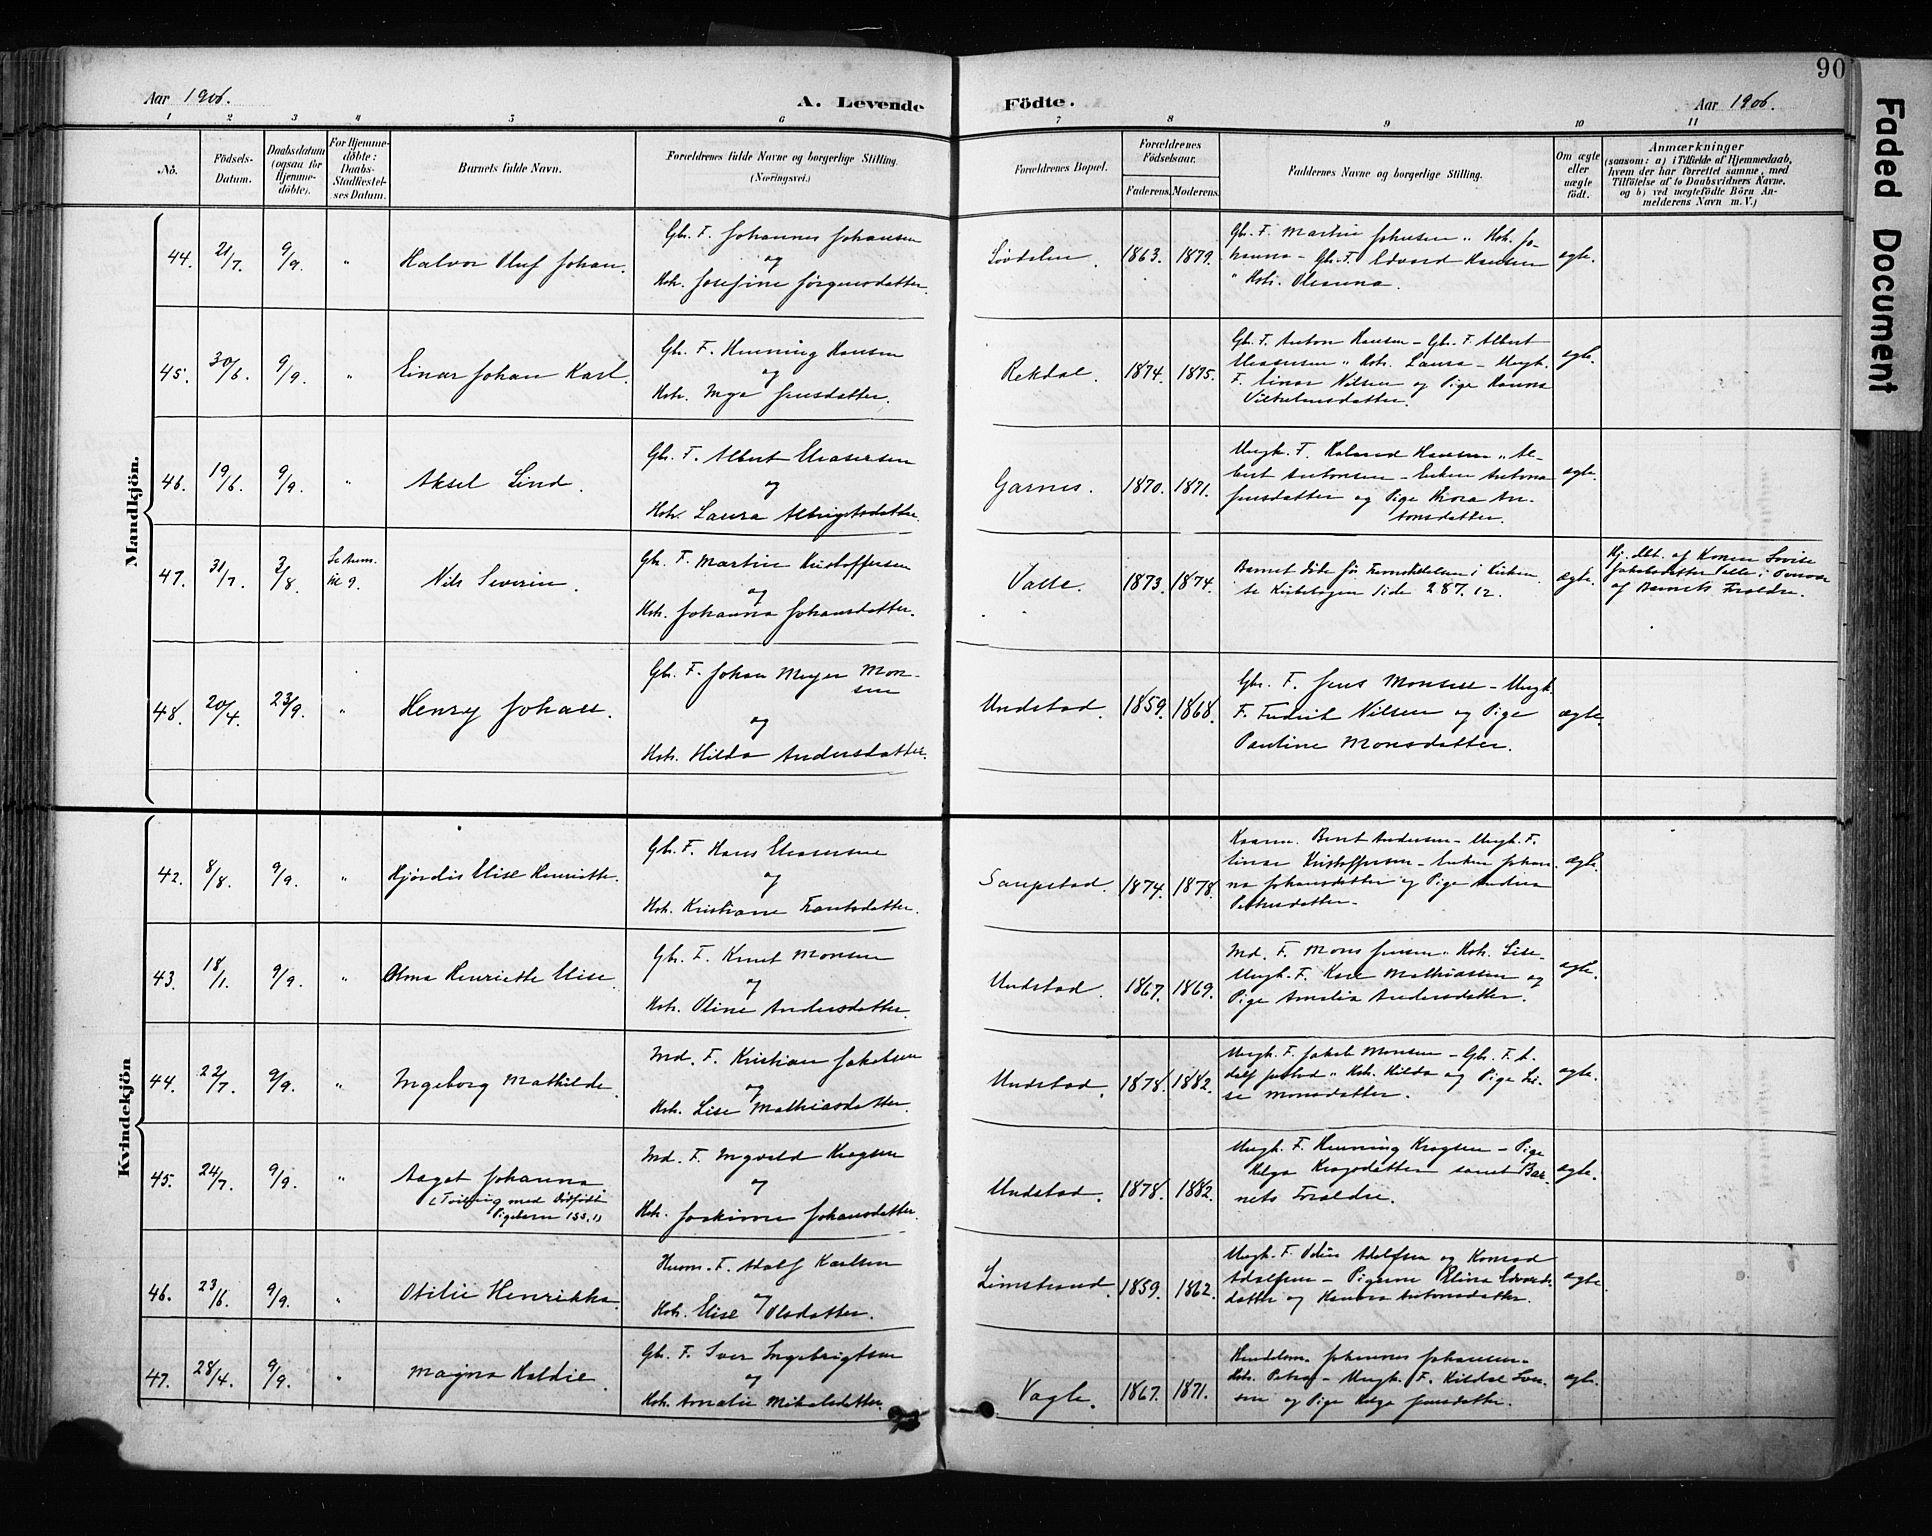 Aar 1906.
A. Levende
Födte.
Aar 1906.
90
Faded Document
1 2 3 4 5 6 7 8 9 10 11
No.
Födsels-
Datum.
Daabsdatum
(ogsaa for
Hjemme-
døbte).
For Hjemme-
døbte:
Daabs-
Stadfæstel-
ses Datum.
Barnets fulde Navn.
Forældrenes fulde Navne og borgerlige Stilling.
(Næringsvei.)
Forældrenes Bopæl.
Forældrenes
Födselsaar.
Faderens.
Moderens.
Faddernes Navne og borgerlige Stilling.
Om ægte
eller
uægte
født.
Anmærkninger
(saasom: a) i Tilfælde af Hjemmedaab,
hvem der har forrettet samme, med
Tilföielse af to Daabsvidners Navne,
og b) ved uægtefödte Börn An-
melderens Navn m. V.)
Mandkjön.
44. 21/7. 9/9. " Halvor Oluf Johan.
Gbr. F. Johannes Johansen
og
Hst. Josefine Jørgensdatter.
Løvdalen. 1863. 1879.
Gbr. F. Martin Johnsen " Hst. Jo-
hanna - Gbr. F. Edvard Hansen
" Hst. Oleanna.
ægte.
45. 30/6. 9/9. " Einar Johan Karl.
Gbr. F. Henning Hansen
og
Hst. Inga Jensdatter.
Rekdal. 1874. 1875.
Gbr. F. Anton Hansen - Gbr. F. Albert
Eliasersen " Hst. Laura - Ungk.
F. Einar Nilsen og Pige Hanna
Vilhelmsdatter.
ægte.
46. 19/6. 9/9. " Aksel Lind.
Gbr. F. Albert Eliasersen
og
Hst. Laura Albrigtsdatter.
Garnes. 1870. 1871.
Ungk. F. Hansen " Al-
bert Antonsen - Enken Antona
Jensdatter og Pige Thora An-
tonsdatter.
ægte.
47. 31/7. 3/8. Se Anm.
til 9.
Nils Severin.
Gbr. F. Martin Kristoffersen
og
Hst. Johanna Johansdatter.
Valle. 1873. 1874.
Barnet døde før Fremstillelsen i Kirken.
se Kirkebogen Side 287. 12.
ægte.
Hj. dbt. af Konen Lovise
Jakobsdatter Valle i Overvær
af Barnets Forældre.
48. 20/4. 23/9. " Henry Johan.
Gbr. F. Johan Meyer Mon-
sen
og
Hst. Hilda Andersdatter.
Undstad. 1859. 1868.
Gbr. F. Jens Monsen - Ungk.
F. Fredrik Nilsen og Pige
Pauline Monsdatter.
ægte.
Kvindekjön
42. 8/8. 9/9. " Hjørdis Elise Henriette.
Gbr. F. Hans Eliasersen
og
Hst. Kristiane Frantsdatter.
Saupstad. 1874. 1878.
Kaarm. Bernt Andersen - Ungk. F.
Einar Kristoffersen - Enken Johan-
na Johansdatter og Pige Andrea
Petersdatter.
ægte.
43. 18/1. 9/9. " Alma Henriette Elise.
Gbr. F. Knut Monsen
og
Hst. Oline Andersdatter.
Undstad. 1867. 1869.
Md. F. Mons Jensen " Hst. Lise -
Ungk. F. Karl Mathiassen og
Pige Amalia Andersdatter.
ægte.
44. 22/7. 9/9. " Ingeborg Mathilde.
Md. F. Kristian Jakobsen
og
Hst. Lise Mathiasdatter.
Undstad. 1878. 1882.
Ungk. F. Jakob Monsen - Gbr. F. A-
dolf " Hst. Hilda og Pige Li-
se Monsdatter.
ægte.
45. 24/7. 9/9. " Aagot Johanna
(Tvilling med Dødfødt
Pigebarn 155, 1)
Md. F. Ingvald Krogsen
og
Hst. Joakime Johansdatter.
Undstad. 1878. 1882.
Ungk. F. Henning Krogsen - Pige
Helga Krogsdatter samt Bar-
nets Forældre.
ægte.
46. 23/6. 9/9. " Otilie Henrikka.
Husm. F. Adolf Karlsen
og
Hst. Elise Olsdatter.
Limstrand. 1859. 1862.
Ungk. F. Odin Adolfsen og Konrad
Adolfsen - Pigerne Elina Edvards-
datter og Hanna Antonsdatter.
ægte
47. 28/4. 9/9. " Magna Haldie.
Gbr. F. Iver Ingebrigtsen
og
Hst. Amalie Mikalsdatter.
Vagle. 1867. 1871.
Handelsm. Johannes Johansen -
Hst. Petra - Ungk. F. Hildal Iver-
sen og Pige Helga Jensdatter.
ægte.